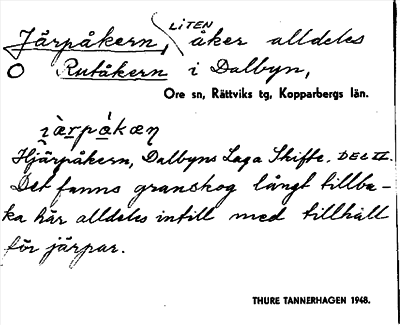 Järpåkern, LITEN åker alldeles
O Rutåkern i Dalbyn,
Ore sn, Rättviks tg, Kopparbergs län.
i̯ärpåkæn
Hjärpåkern, Dalbyns Laga Skifte. DEL II.
Det fanns granskog långt tillba-
ka här alldeles intill med tillhåll
för järpar.
THURE TANNERHAGEN 1948.